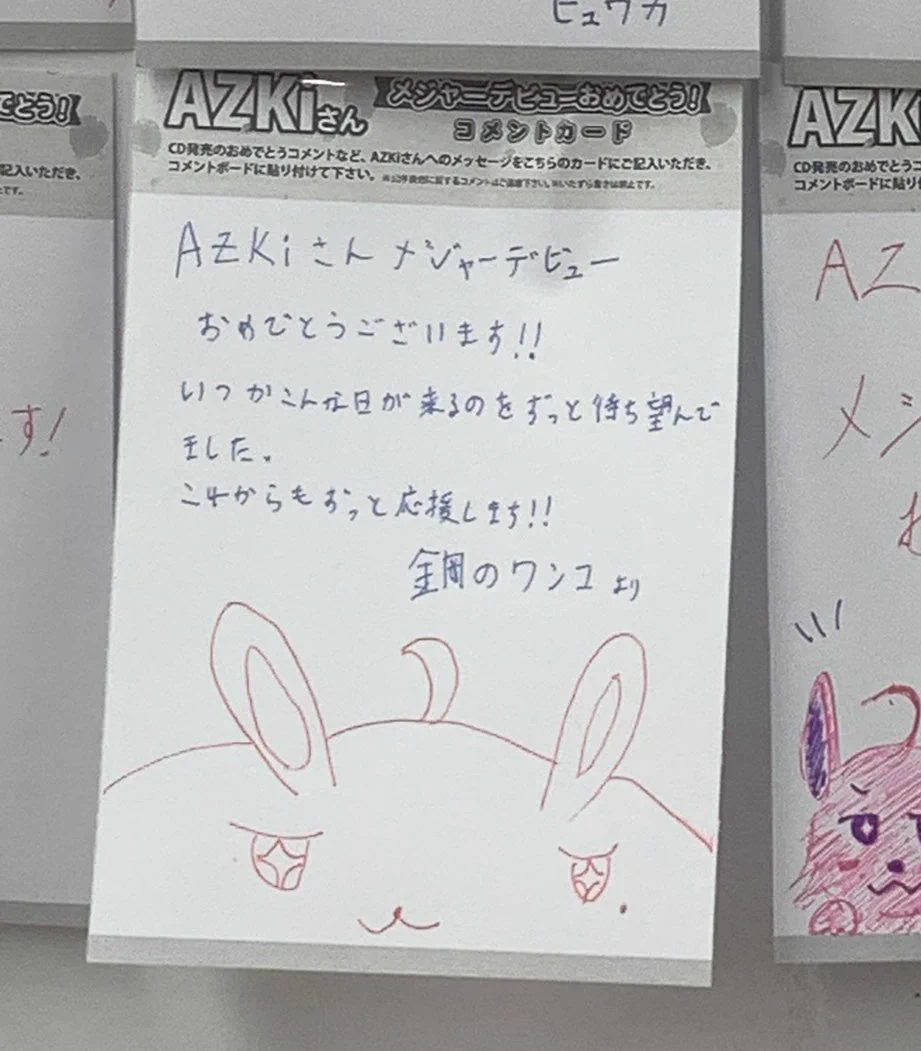 ヒュウガ
AZKiさん メジャーデビューおめでとう!
コメントカード
CD発売のおめでとうコメントなど、AZKiさんへのメッセージをこちらのカードにご記入いただき、
コメントボードに貼り付けて下さい。
AZKiさん メジャーデビュー
おめでとうございます!!
いつかこんな日が来るのをずっと待ち望んで
ました。
これからもずっと応援します!!
鋼のワンコより
とう!
記入いただき、
です。
す!
AZK
CD発売のおめでとうコ
コメントボードに貼り付
AZ
メジ